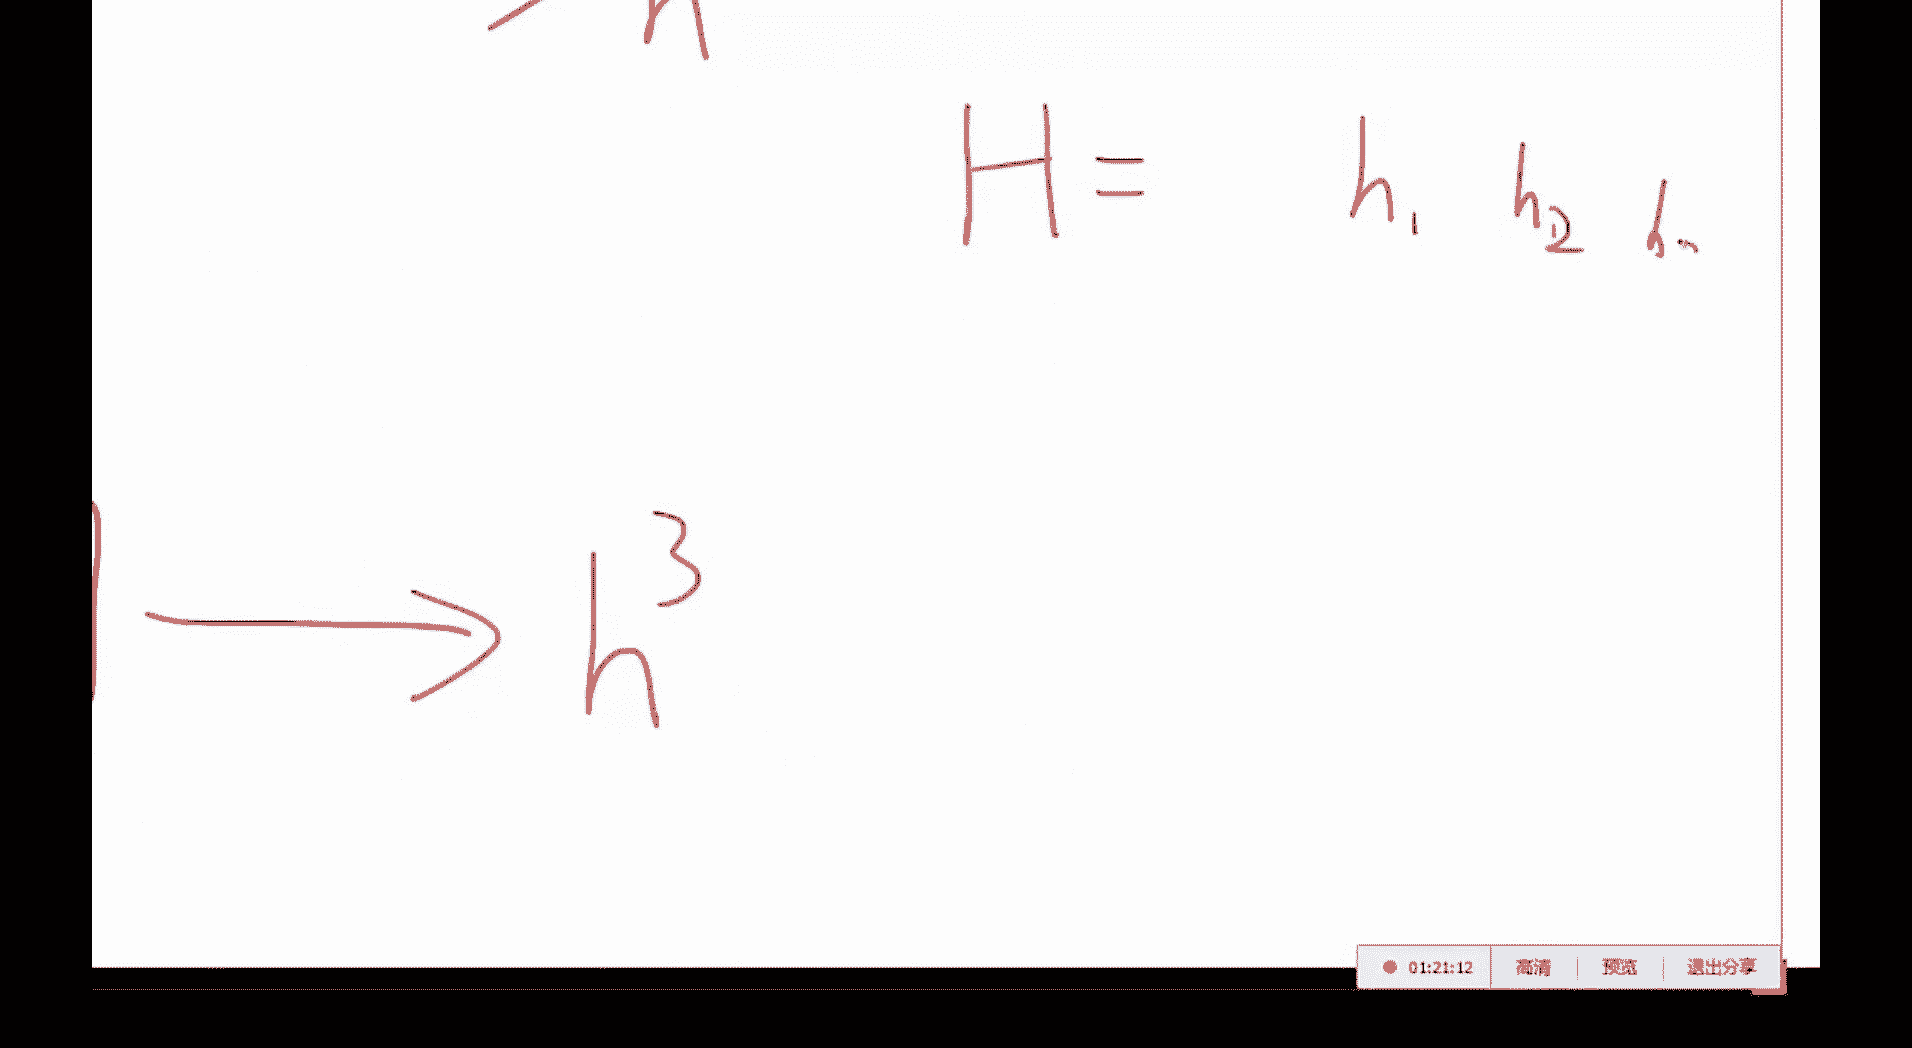 H = h₁ h₂ h
→ h³
01:21:12 高清 预览 退出分享